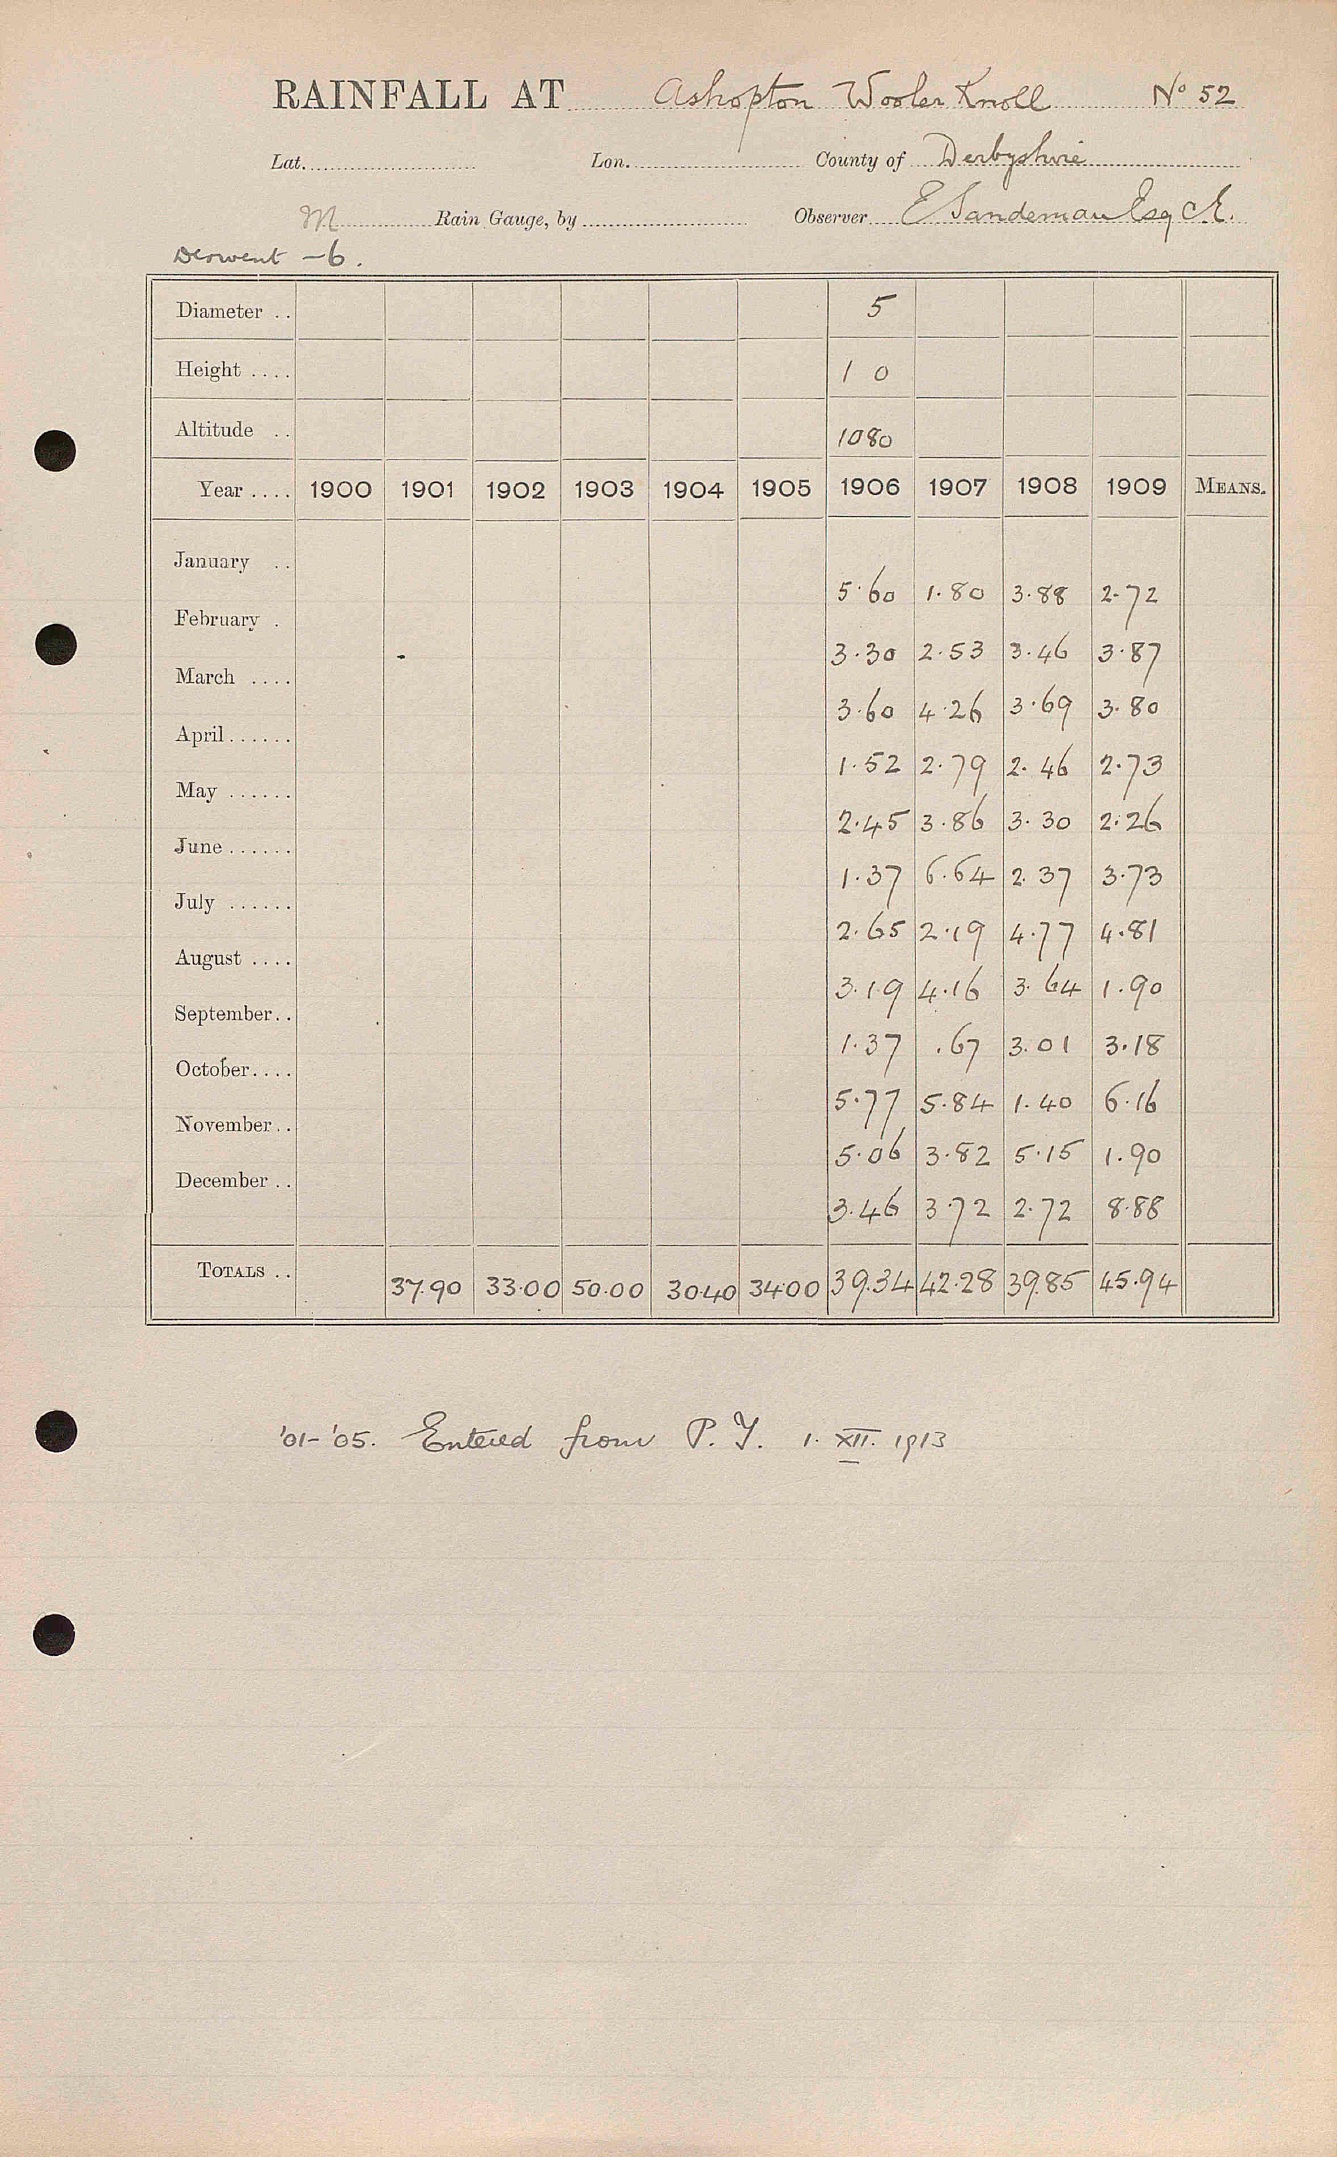 RAINFALL AT Ashopton Wooler Knoll No 52
Lat. Lon. County of Derbyshire
M Rain Gauge, by Observer E Sandeman Esq C.E.
Derwent - 6.
Diameter .. 5
Height .... 1 0
Altitude .. 1080
Year .... 1900 1901 1902 1903 1904 1905 1906 1907 1908 1909 MEANS.
January .. 5.60 1.80 3.88 2.72
February . 3.30 2.53 3.46 3.87
March .... 3.60 4.26 3.69 3.80
April...... 1.52 2.79 2.46 2.73
May ...... 2.45 3.86 3.30 2.26
June...... 1.37 6.64 2.37 3.73
July ...... 2.65 2.19 4.77 4.81
August .... 3.19 4.16 3.64 1.90
September.. 1.37 .67 3.01 3.18
October.... 5.77 5.84 1.40 6.16
November.. 5.06 3.82 5.15 1.90
December .. 3.46 3.72 2.72 8.88
TOTALS .. 37.90 33.00 50.00 30.40 34.00 39.34 42.28 39.85 45.94
'01-'05. Entered from P. Y. 1. XII. 1913